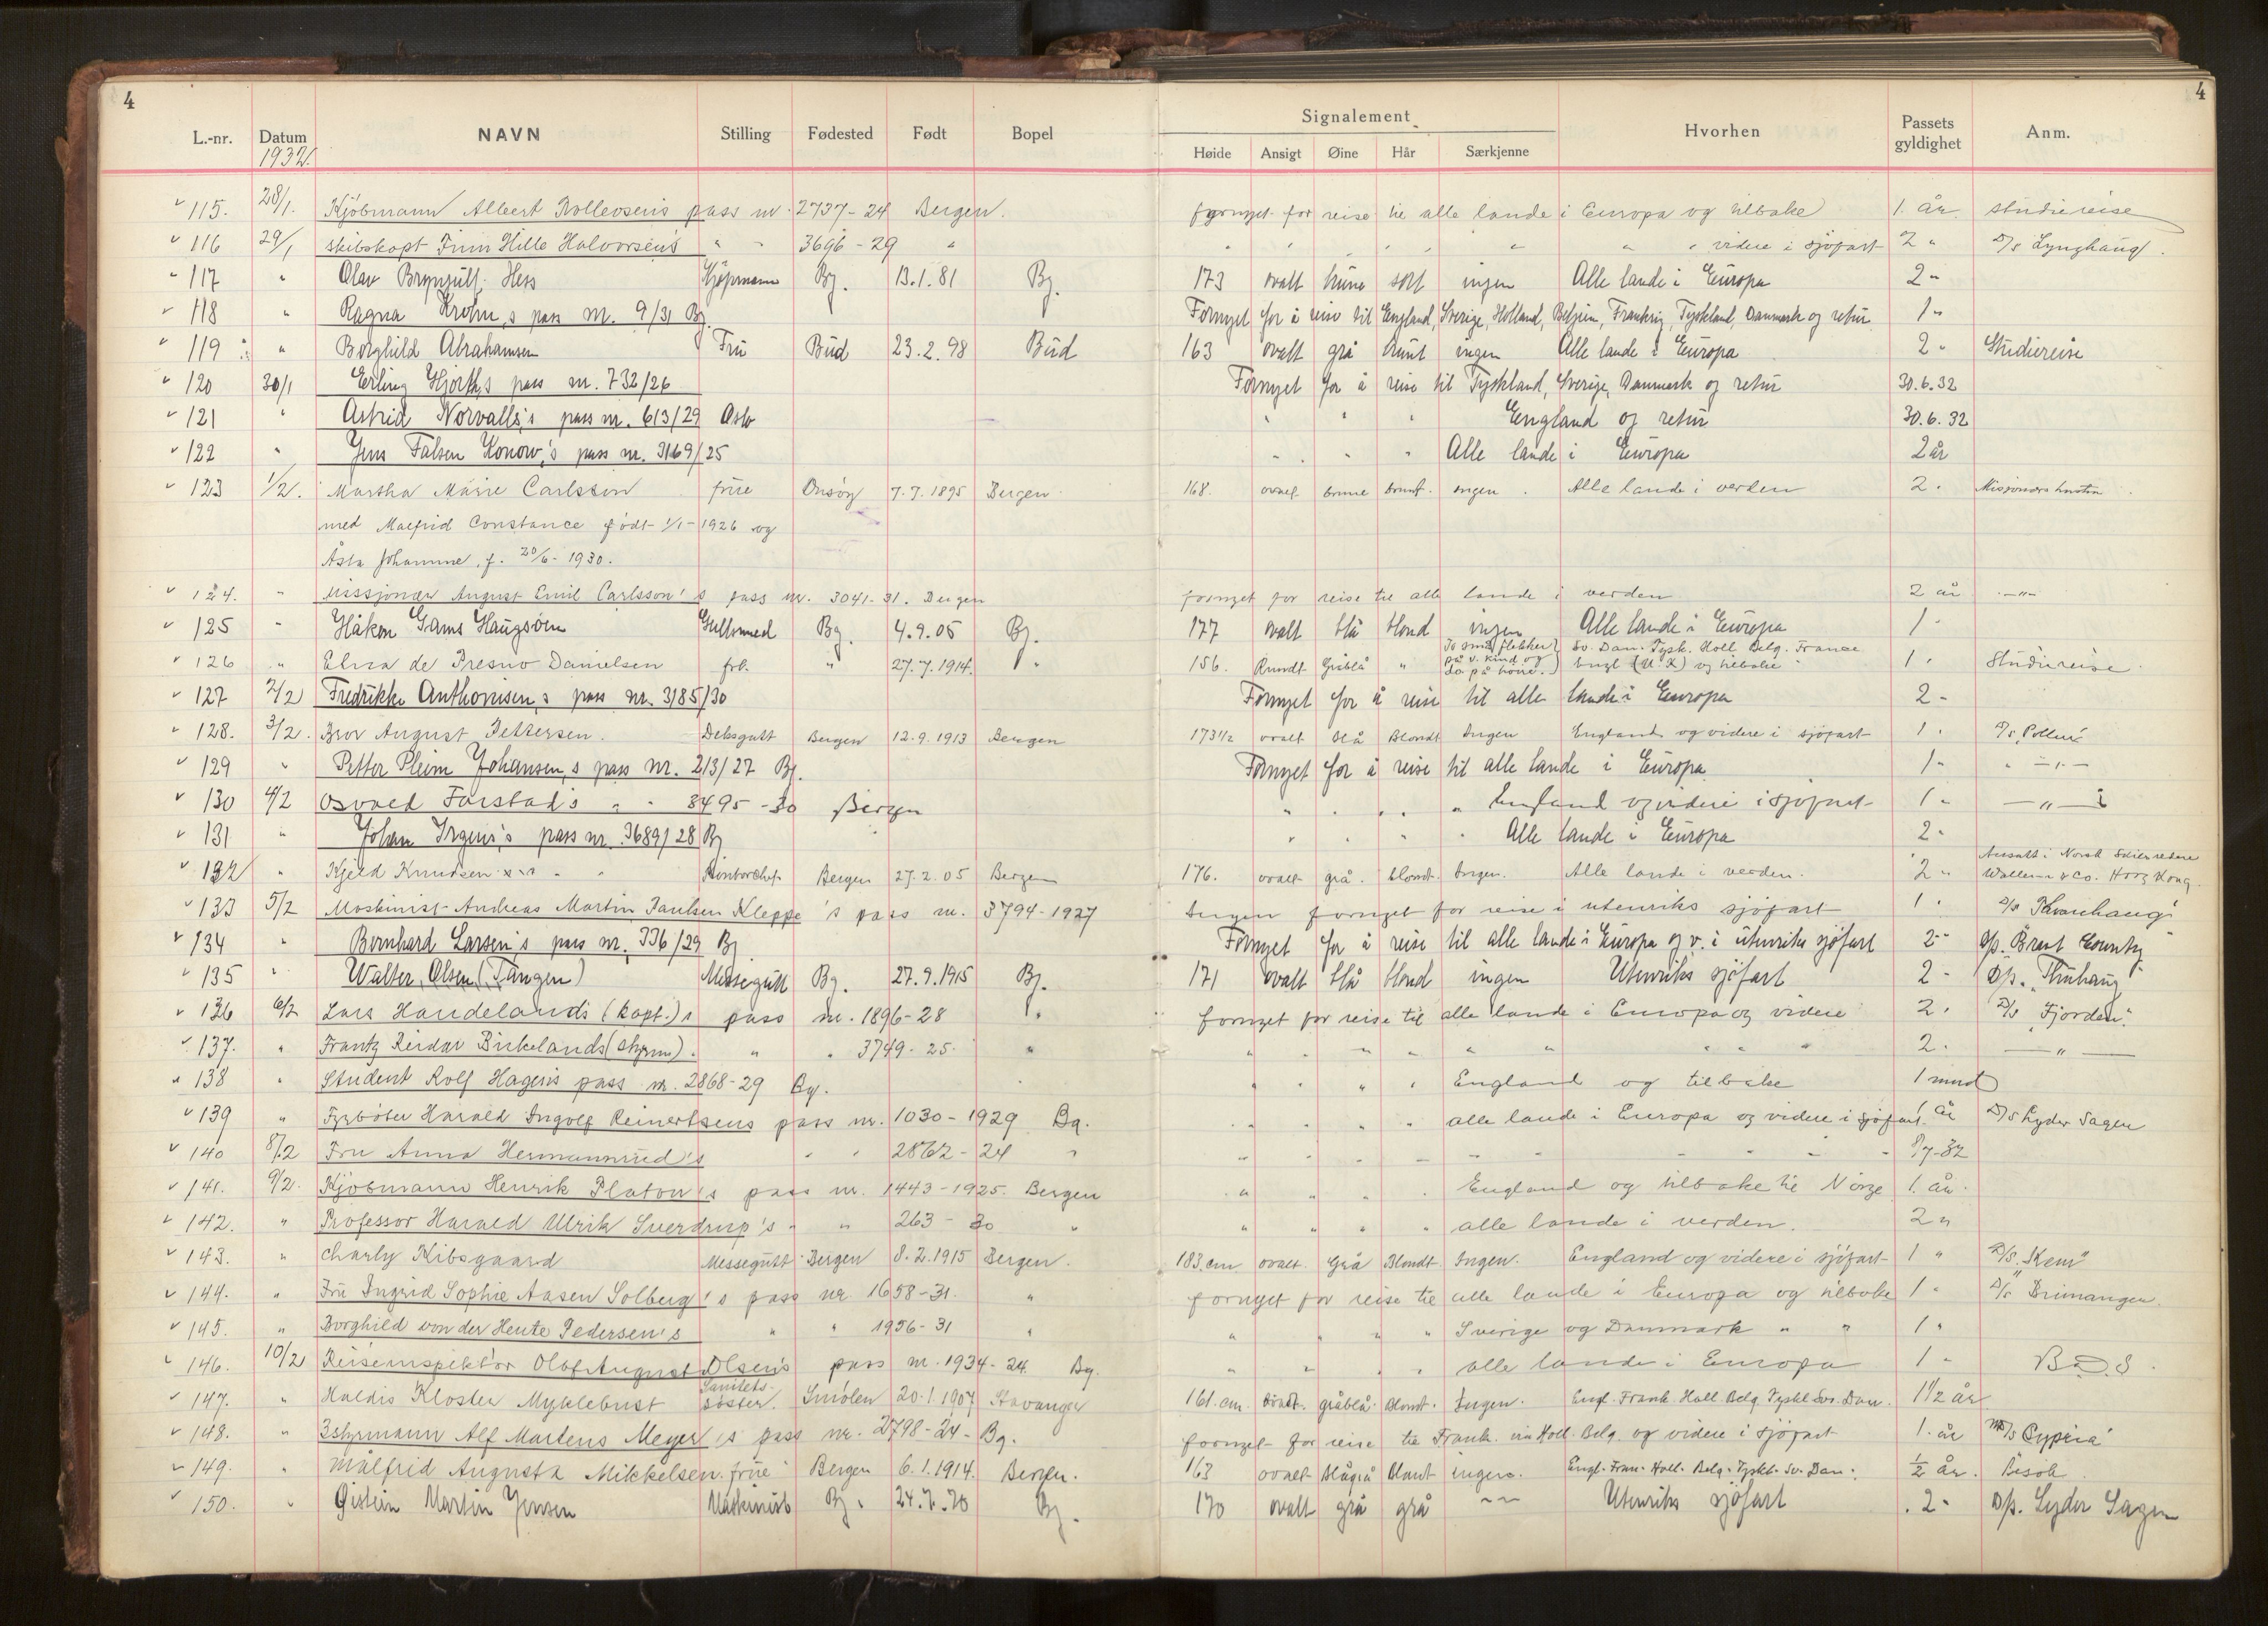 4 4
L.-nr. Datum NAVN Stilling Fødested Født Bopel Signalement Hvorhen Passets gyldighet Anm.
1932. Høide Ansigt Øine Hår Særkjenne
115. 28/1. Kjöbmann Albert Rollevsens pass nr. 2737-24 Bergen. fornyet for reise til alle lande i Europa og tilbake 1. år. studiereise
116 29/1 skibskapt Finn Hille Halvorsen's " " 3696-29 " " " " " " " " videre i sjöfart 2 " D/s Lynghaug.
117 " Olav Brynjulf Hess Kjøpmann Bg. 13.1.81 Bg. 173 ovalt brune sort ingen Alle lande i Europa 2 "
118 " Ragna Krohn,s pass nr. 9/31 Bg. Fornyet for å reise til England, Sverige, Holland, Belgien, Frankrig, Tyskland, Danmark og retur. 1 "
119 " Borghild Abrahamsen Fru Bud 23.2.98 Bud 163 ovalt grå brunt ingen Alle lande i Europa 2 " Studiereise
120 30/1 Erling Hjorth,s pass nr. 732/26 Fornyet for å reise til Tyskland, Sverige, Danmark og retur 30.6.32
121 " Astrid Norvalls,s pass nr. 613/29 Oslo " " " England og retur 30.6.32
122 " Jens Falsen Konow,s pass nr. 3169/25 " " " Alle lande i Europa 2 år
123 1/2. Martha Marie Carlsson frue Onsöy 7.7.1895 Bergen. 168. ovalt brune brunt. ingen. Alle lande i verden 2. Misjonærhustru
med Malfrid Constance født 1/1-1926 og
Åsta Johanne, f. 20/6-1930.
124. " Missjonær August Emil Carlsson's pass nr. 3041-31. Bergen fornyet for reise til alle lande i verden 2 år -"-
125 " Håkon Gams Haugsøen Gullsmed Bg. 4.9.05 Bg. 177 ovalt blå blond ingen Alle lande i Europa 1 "
126 " Elisa de Presno Danielsen frk. " 27.7.1914. " 156. Rundt Gråblå " To små flekker på v. kind og do på høire. Sv. Dan. Tysk. Holl. Belg. France Engl. og tilbake 1 " Studiereise.
127 2/2 Fredrikke Anthonisen,s pass nr. 3185/30 Fornyet for å reise til alle lande i Europa 2 "
128. 3/2. Bror August Pettersen. Deksgutt Bergen 12.9.1913 Bergen 173 1/2 ovalt blå Blondt Ingen England og videre i sjöfart 1. D/s "Pollux"
129 " Petter Pleim Johansen,s pass nr. 213/27 Bg. Fornyet for å reise til alle lande i Europa 1 " " -"-
130 4/2 Osvald Farstad's " " 3495-30 Bergen " " " " England og videre i sjöfart 1 " -"-
131 " Johan Irgens's pass nr. 3689/28 Bg " " " " Alle lande i Europa 2 "
132 " Kjeld Knudsen Kontorchef. Bergen 27.2.05 Bergen 176. ovalt grå. blondt. Ingen. Alle lande i verden. 2 " Ansatt i Norsk Wallem & Co. Hong Kong.
133 5/2 Maskinist Andreas Martin Paulsen Kleppe's pass nr. 3794-1927 fornyet for reise i utenriks sjöfart 1 " D/s Kvarnhaug"
134 " Bernhard Larsen's pass nr. 336/29 Bg Fornyet for å reise til alle lande i Europa og v. i utenriks sjöfart 2 " D/s. Brant County"
135 " Walter Olsen (Tangen) Messegutt Bg. 27.9.1915 Bg. 171 ovalt blå blond ingen Utenriks sjöfart 2 " D/s.
136 6/2 Lars Handelands (kapt.)s pass nr. 1896-28 " fornyet for reise til alle lande i Europa og videre 2. D/s "Fjorden".
137. " Frantz Reidar Birkelands (styrm). " " 3749-25. " " " " " " " " " " 2. -"-
138 " Student Rolf Hagens pass nr. 2868-29 Bg. " " " " England og tilbake 1 mnd
139 " Fyrböter Harald Ingolf Reinertsens pass nr. 1030-1929 Bg. " " " " alle lande i Europa og videre i sjöfart. 1 år D/S Lyder Sagen
140 8/2 Fru Anna Hermannrud's " " 2862-24 " " " " " " " " " " 8/7-32
141. 9/2. Kjöbmann Henrik Platou's pass nr. 1443-1925. Bergen " " " " England og tilbake til Norge 1. år.
142. " Professor Harald Ulrik Sverdrup's " " 263-30 " " " " " alle lande i verden. 2 "
143. " Charly Kibsgaard Messegutt Bergen 8.2.1915 Bergen. 183. cm ovalt. Grå Blondt. Ingen. England og videre i sjöfart 1 " D/S. "Kem"
144. " Fru Ingrid Sophie Aasen Solberg's pass nr 1658-31. " fornyet for reise til alle lande i Europa og tilbake 1 " D/s Brimanger.
145. " Borghild von der Heute Pedersen's " " 1956-31 " " " " " Sverige og Danmark " " 1 "
146. 10/2 Reiseinspektör Olaf August Olsen's pass nr. 1934-24. Bg. " " " " alle lande i Europa 1 " B.D.S.
147. " Haldis Kloster Myklebust Sanitets-söster. Smölen 20.1.1907 Stavanger 161. cm. ovalt. gråblå. Blondt. Ingen. Engl. Frank. Holl. Belg. Tyskl. Sv. Dan. 1 1/2 år
148. " 3styrmann Alf Martens Meyer's pass nr. 2798-24- Bg. fornyet for reise til Frank. via Holl. Belg. og videre i sjöfart 1. år M/s "Cypria"
149. " Målfrid Augusta Mikkelsen. frue Bergen 6.1.1914. Bergen. 163 ovalt blågrå Blont ingen. Engl. Fran. Holl. Belg. Tyskl. Sv. Dan. 1/2 år. Besök
150. " Øistein Martin Jensen Maskinist Bg. Bg. 170 ovalt grå grå -"- Utenriks sjöfart 2 " D/s. Lyder Sagen